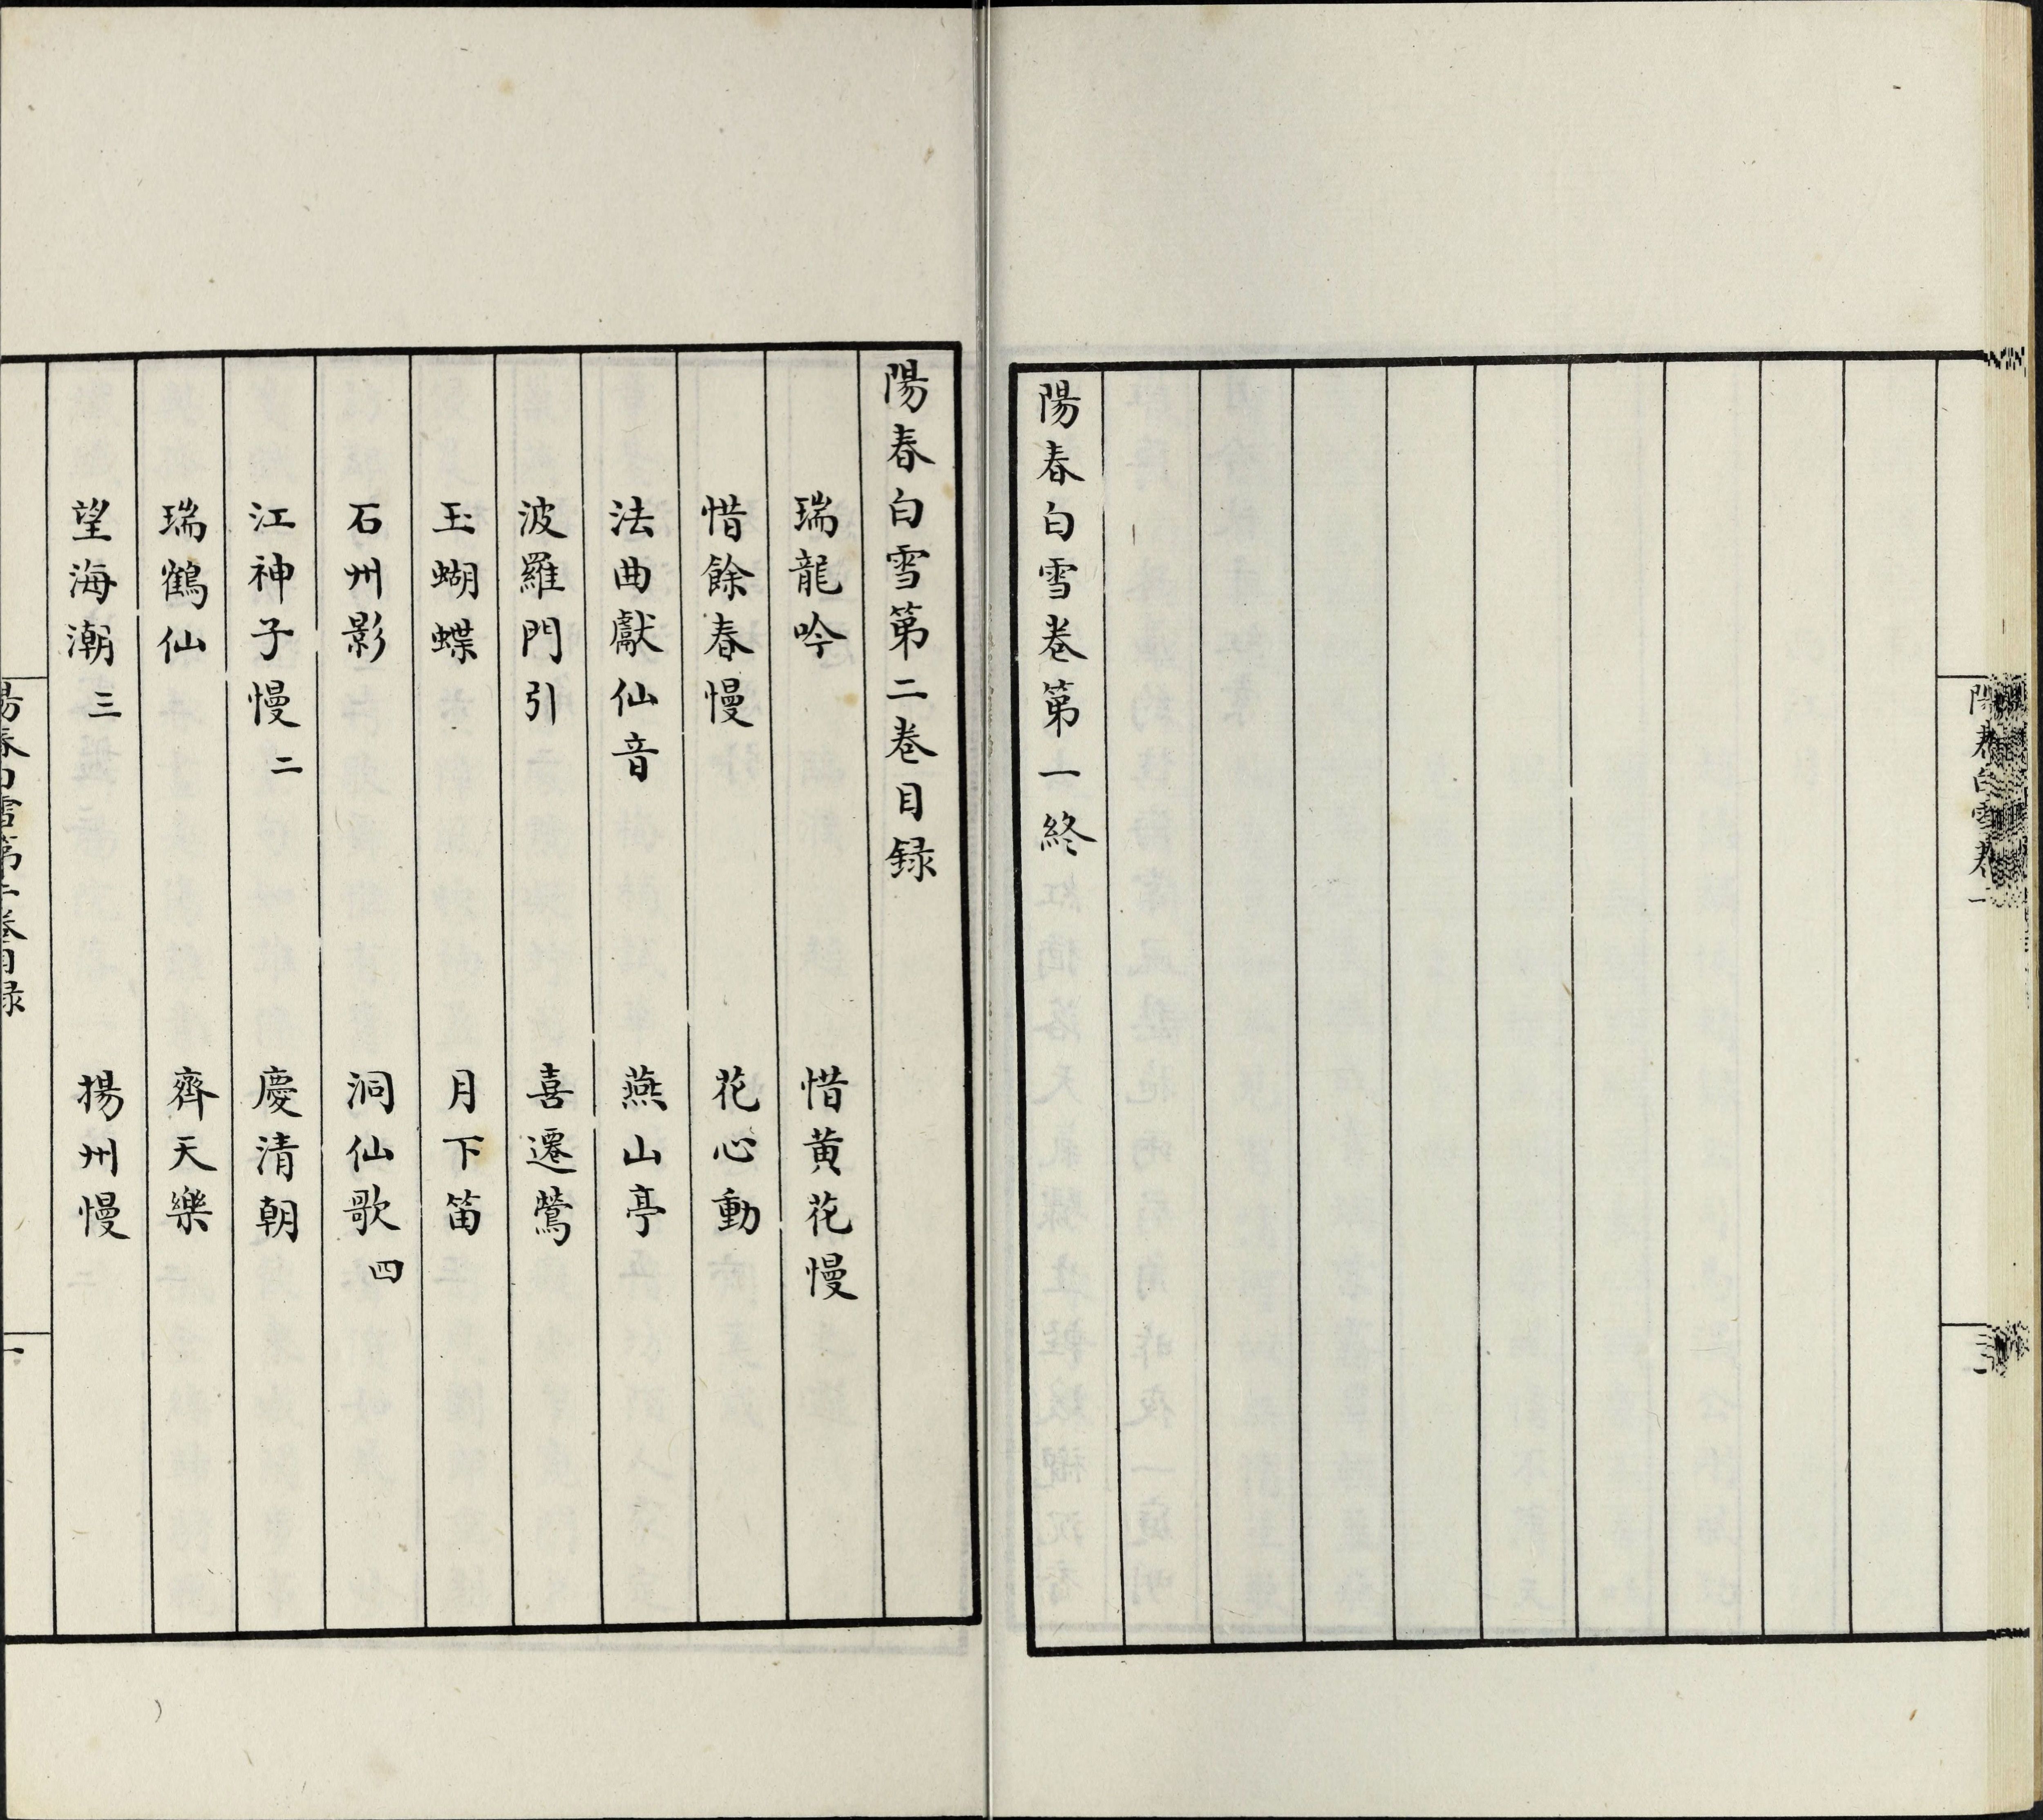 陽春白雪卷第一終
陽春白雪第二卷目録
瑞龍吟　惜黄花慢
惜餘春慢　花心動
法曲獻仙音　燕山亭
波羅門引　喜遷鶯
玉蝴蝶　月下笛
石州影　洞仙歌四
江神子慢二　慶清朝
瑞鶴仙　齊天樂
望海潮三　揚州慢